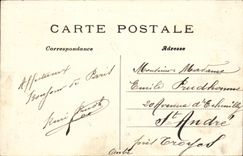 CARTE POSTALE
Correspondance
Adresse
Affectueux
Bonjour de Paris
Monsieur Madame
Emile Prudhomme
20 Avenue d'
St André
près Troyes
Aube